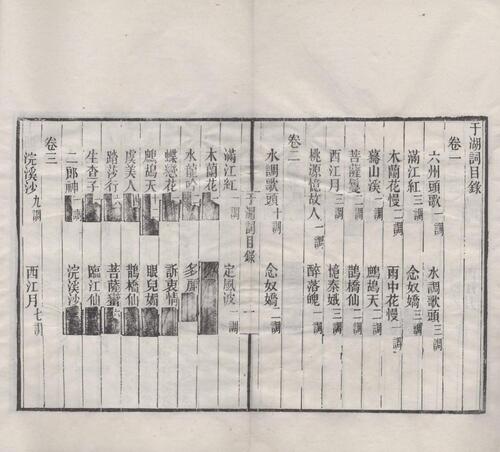 于湖詞目錄
卷一
六州頭歌一調 水調歌頭三調
滿江紅三調 念奴嬌三調
木蘭花慢二調 雨中花慢一調
驀山溪二調 鷓鴣天二調
菩薩蠻二調 鵲橋仙二調
西江月三調 憶秦娥三調
桃源憶故人一調 醉落魄一調
卷二
水調歌頭十調 念奴嬌二調
于湖詞目錄 一
滿江紅一調 定風波一調
木蘭花
水龍吟 多麗
蝶戀花 訴衷情
鷓鴣天 眼兒媚
虞美人 鵲橋仙
踏莎行 菩薩蠻
生查子 臨江仙
二郎神 浣溪沙
卷三
浣溪沙九調 西江月七調